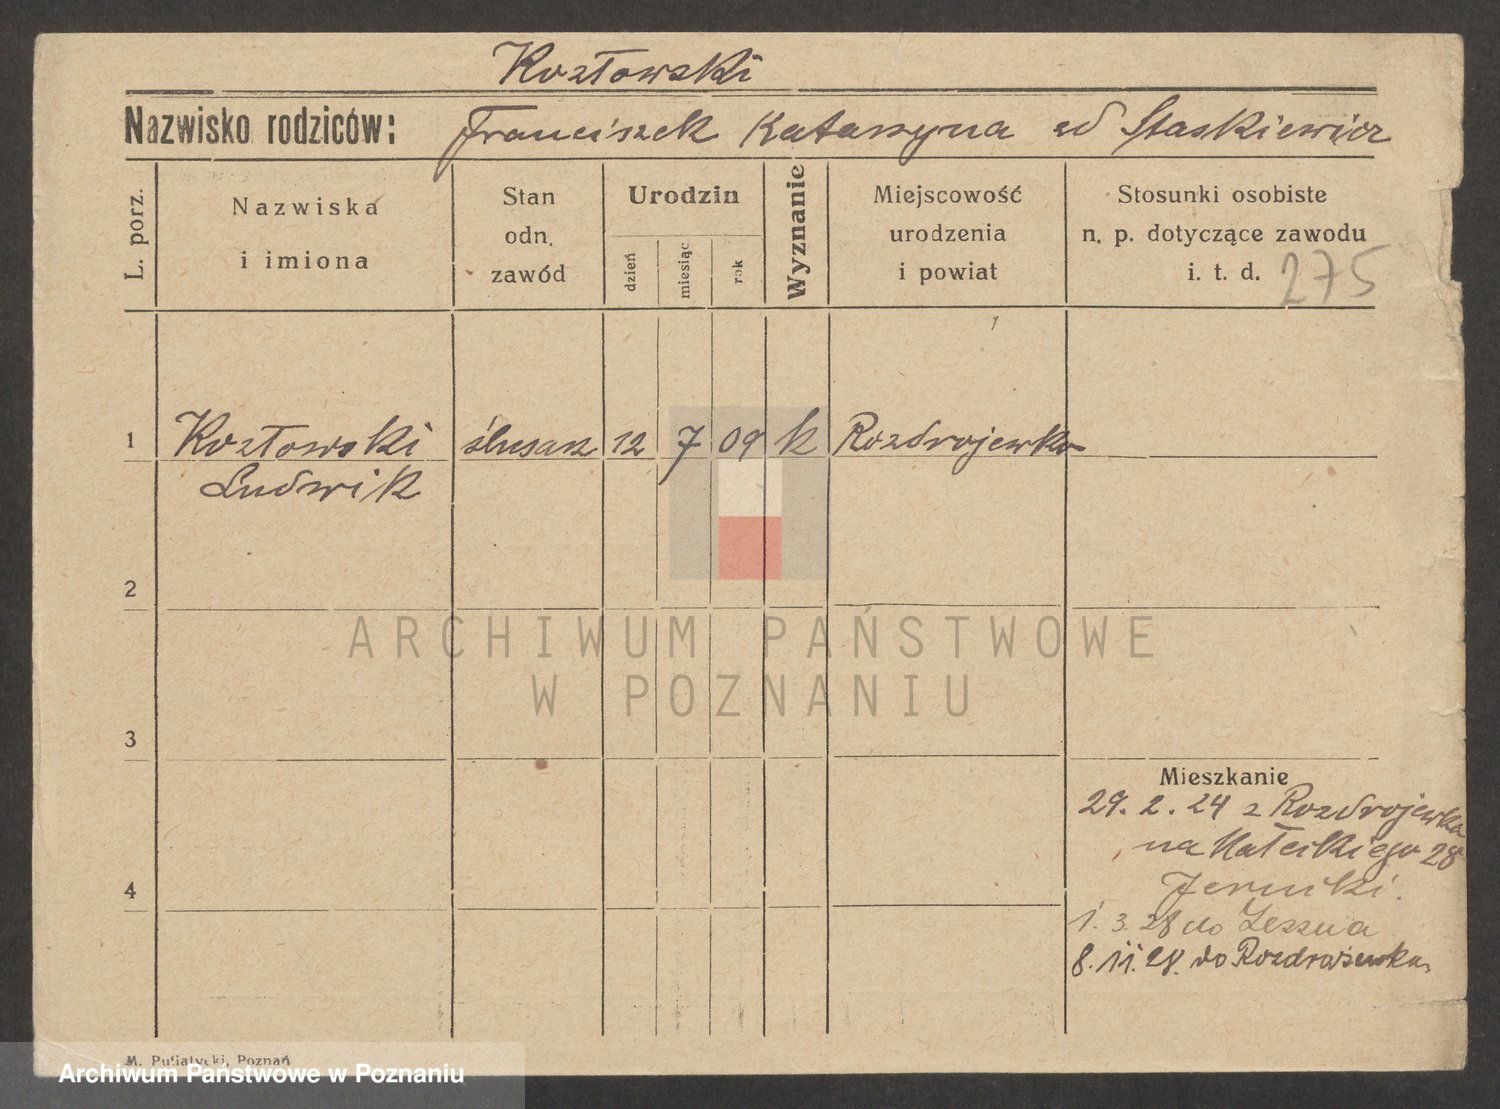 Kozłowski
Nazwisko rodziców: Franciszek Katarzyna zd Staskiewicz
L. porz.
Nazwiska
i imiona
Stan
odn.
zawód
Urodzin
dzień
miesiąc
rok
Wyznanie
Miejscowość
urodzenia
i powiat
Stosunki osobiste
n. p. dotyczące zawodu
i. t. d.
275
1 Kozłowski ślusarz 12 7 09 k Rozdrojewko
Ludwik
2
3
4
Mieszkanie
29. 2. 24 z Rozdrojewka
na Małeckiego 28
1. 3. 28 do Leszna
8. 11. 28. do
M. Putiatycki, Poznań
ARCHIWUM PAŃSTWOWE
W POZNANIU
Archiwum Państwowe w Poznaniu